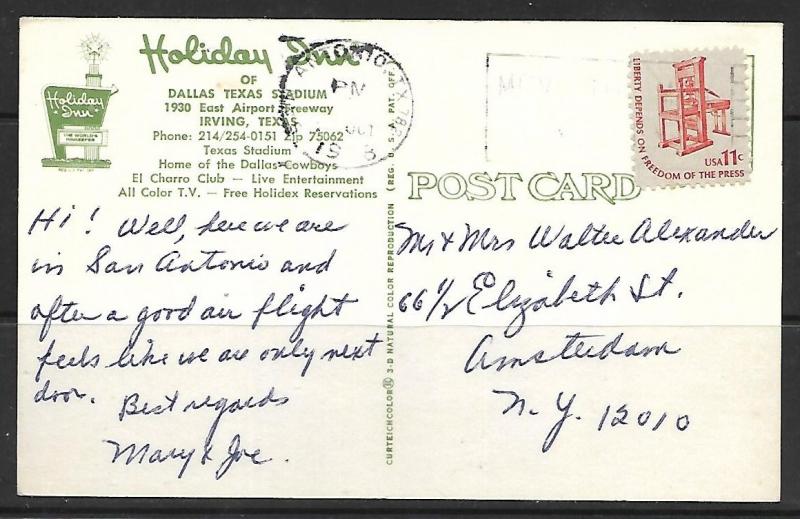 Holiday Inn
OF
DALLAS TEXAS STADIUM
1930 East Airport Freeway
IRVING, TEXAS
Phone: 214/254-0151 Zip 75062
Texas Stadium
Home of the Dallas Cowboys
El Charro Club — Live Entertainment
All Color T.V. — Free Holidex Reservations
Holiday Inn
Hi! Well, here we are
in San Antonio and
after a good air flight
feels like we are only next
door. Best regards
Mary & Joe.
CURTEICHCOLOR® 3-D NATURAL COLOR REPRODUCTION (REG. U.S.A. PAT. OFF.)
PM
OCT
POST CARD
LIBERTY DEPENDS ON FREEDOM OF THE PRESS
USA 11c
Mr & Mrs Walter Alexander
66 1/2 Elizabeth St.
Amsterdam
N.Y. 12010